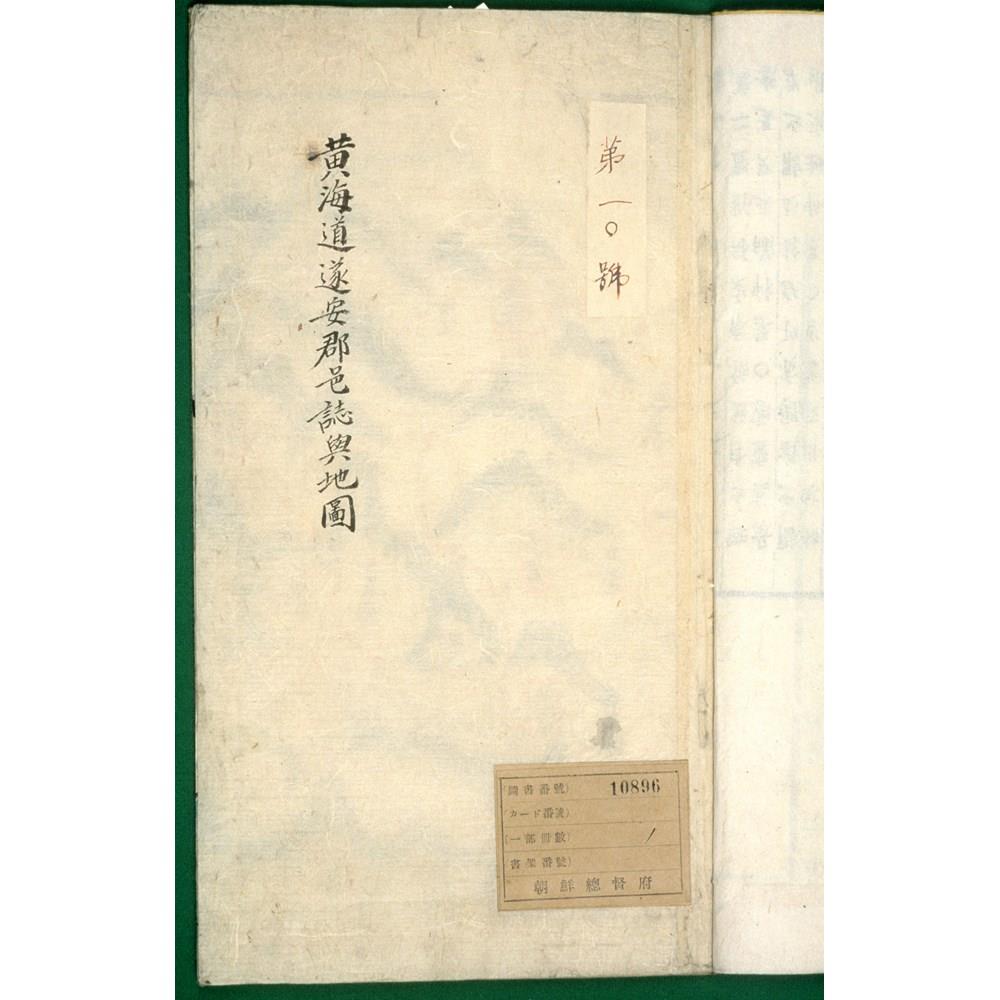 第一〇號
黃海道遂安郡邑誌與地圖
(圖書番號) 10896
(カード番號)
(一部冊數) 1
書架番號)
朝鮮總督府